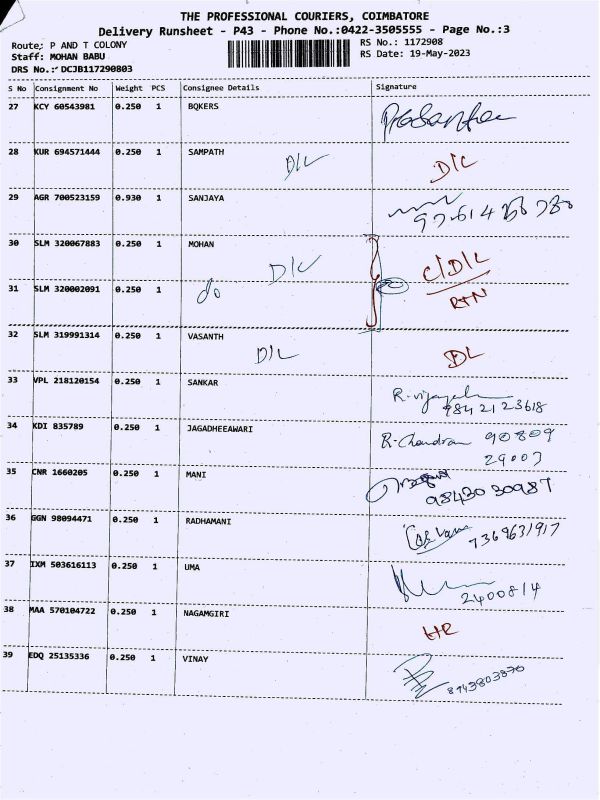 THE PROFESSIONAL COURIERS, COIMBATORE
Delivery Runsheet - P43 - Phone No.:0422-3505555 - Page No.:3
Route: P AND T COLONY
RS No.: 1172908
Staff: MOHAN BABU
RS Date: 19-May-2023
DRS No.: DCJB117290803
S No Consignment No Weight PCS Consignee Details Signature
27 KCY 60543981 0.250 1 BQKERS
28 KUR 694571444 0.250 1 SAMPATH
D/L D/C
29 AGR 700523159 0.930 1 SANJAYA
30 SLM 320067883 0.250 1 MOHAN
D/L C/D/L
31 SLM 320002091 0.250 1
do RTN
32 SLM 319991314 0.250 1 VASANTH
D/L DL
33 VPL 218120154 0.250 1 SANKAR
9842123618
34 KDI 835789 0.250 1 JAGADHEEAWARI
R. Chandran 90809
29003
35 CNR 1660205 0.250 1 MANI
9843030987
36 GGN 98094471 0.250 1 RADHAMANI
7369631917
37 IXM 503616113 0.250 1 UMA
2400814
38 MAA 570104722 0.250 1 NAGAMGIRI
39 EDQ 25135336 0.250 1 VINAY